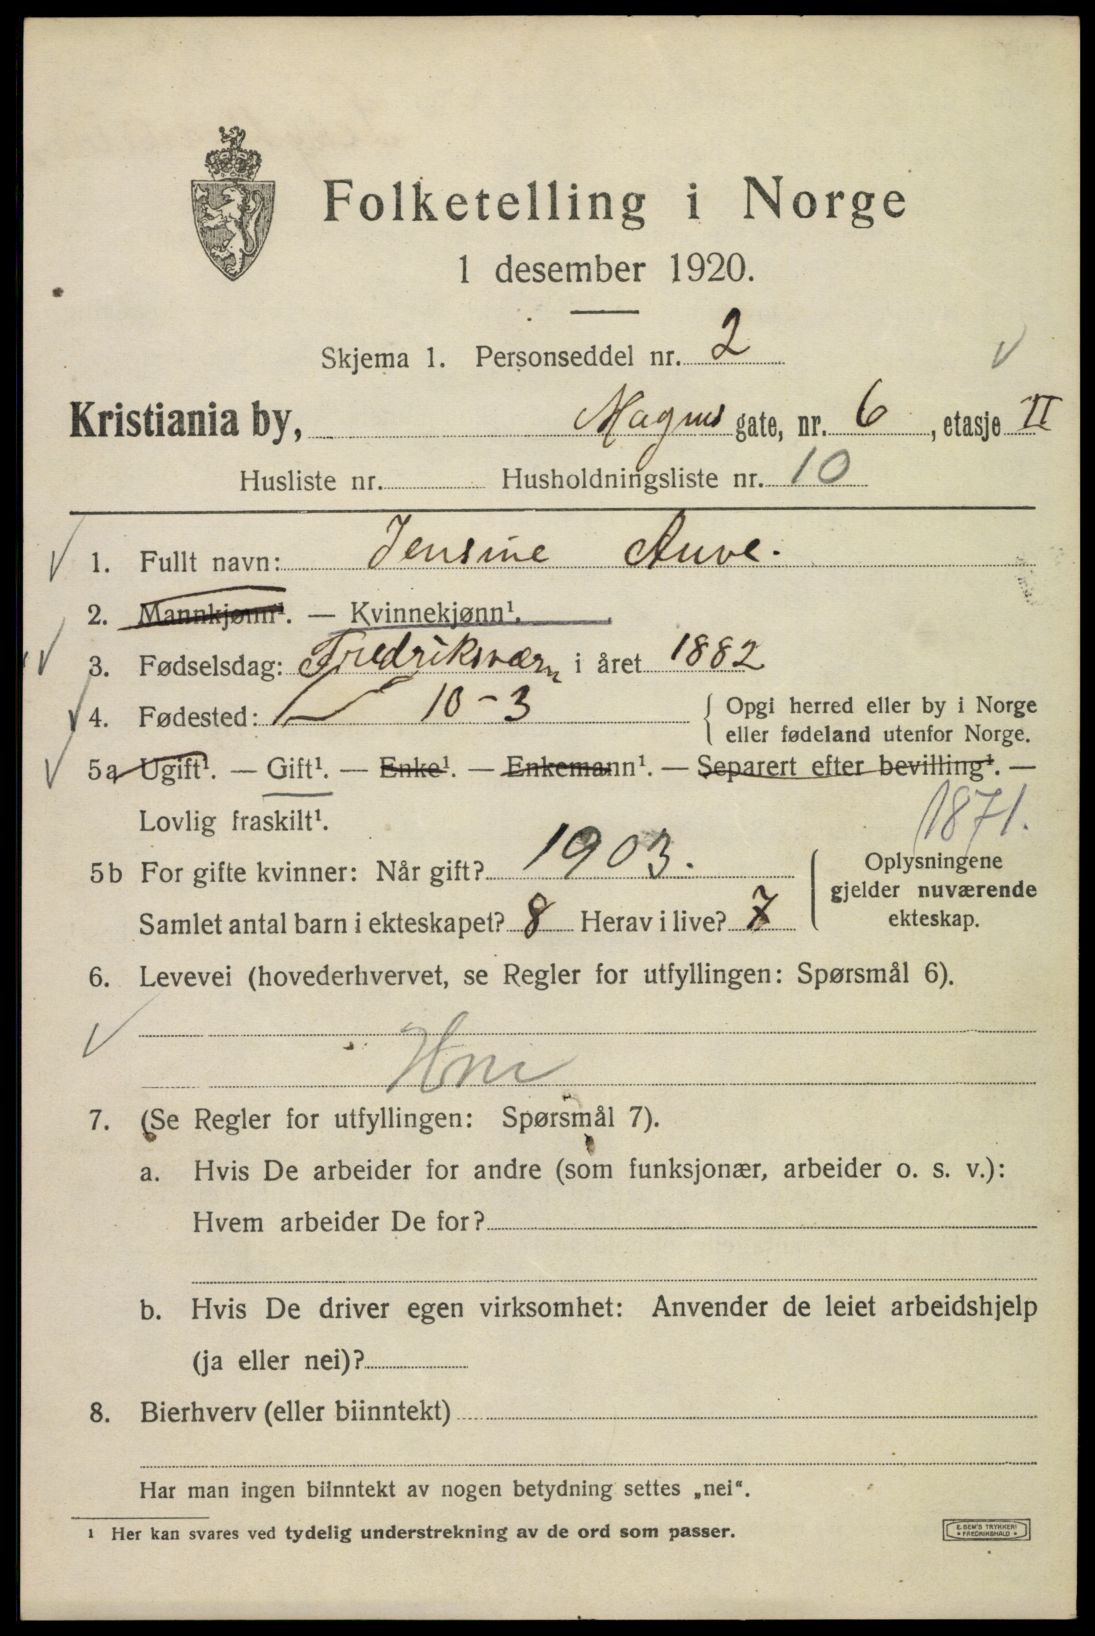 Folketelling i Norge
1 desember 1920.
Skjema 1. Personseddel nr. 2
Kristiania by, Magnus gate, nr. 6, etasje II
Husliste nr. Husholdningsliste nr. 10
1. Fullt navn: Jensine Auve.
2. Mannkjønn¹. — Kvinnekjønn¹.
3. Fødselsdag: Fredriksværn i året 1882
4. Fødested: 10-3 Opgi herred eller by i Norge
eller fødeland utenfor Norge.
5a Ugift¹. — Gift¹. — Enke¹. — Enkemann¹. — Separert efter bevilling¹. —
Lovlig fraskilt¹. 1871.
5b For gifte kvinner: Når gift? 1903. Oplysningene
gjelder nuværende
Samlet antal barn i ekteskapet? 8 Herav i live? 7 ekteskap.
6. Levevei (hovederhvervet, se Regler for utfyllingen: Spørsmål 6).
7. (Se Regler for utfyllingen: Spørsmål 7).
a. Hvis De arbeider for andre (som funksjonær, arbeider o. s. v.):
Hvem arbeider De for?
b. Hvis De driver egen virksomhet: Anvender de leiet arbeidshjelp
(ja eller nei)?
8. Bierhverv (eller biinntekt)
Har man ingen biinntekt av nogen betydning settes „nei“.
¹ Her kan svares ved tydelig understrekning av de ord som passer.
E. SEM'S TRYKKERI
FREDRIKSHALD